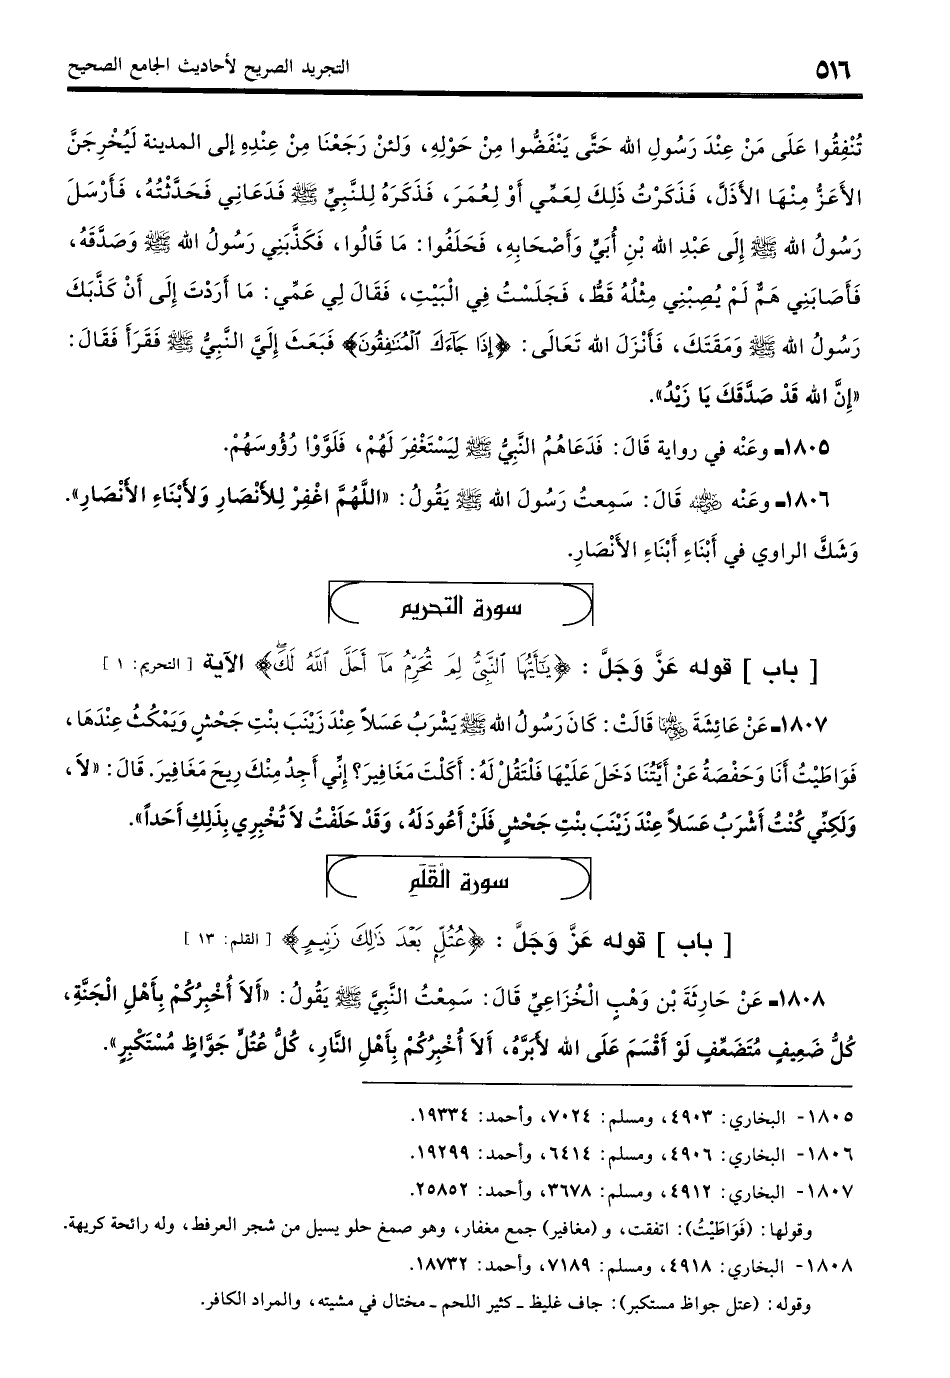 ٥١٦ التجريد الصريح لأحاديث الجامع الصحيح
تُنْفِقُوا عَلَى مَنْ عِنْدَ رَسُولِ الله حَتَّى يَنْفَضُّوا مِنْ حَوْلِهِ، وَلئنْ رَجَعْنَا مِنْ عِنْدِهِ إلى المدينة لَيُخْرِجَنَّ
الأَعَزُّ مِنْهَا الأَذَلَّ، فَذَكَرْتُ ذَلِكَ لِعَمِّي أَوْ لِعُمَرَ، فَذَكَرَهُ لِلنَّبِيِّ ﷺ فَدَعَانِي فَحَدَّثْتُهُ، فَأَرْسَلَ
رَسُولُ الله ﷺ إِلَى عَبْدِ الله بْنِ أُبَيٍّ وَأَصْحَابِهِ، فَحَلَفُوا: مَا قَالُوا، فَكَذَّبَنِي رَسُولُ الله ﷺ وَصَدَّقَهُ،
فَأَصَابَنِي هَمٌّ لَمْ يُصِبْنِي مِثْلُهُ قَطُّ، فَجَلَسْتُ فِي الْبَيْتِ، فَقَالَ لِي عَمِّي: مَا أَرَدْتَ إِلَى أَنْ كَذَّبَكَ
رَسُولُ الله ﷺ وَمَقَتَكَ، فَأَنْزَلَ الله تَعَالَى: ﴿إِذَا جَآءَكَ ٱلْمُنَٰفِقُونَ﴾ فَبَعَثَ إِلَيَّ النَّبِيُّ ﷺ فَقَرَأَ فَقَالَ:
«إِنَّ الله قَدْ صَدَّقَكَ يَا زَيْدُ».
١٨٠٥ـ وعَنْه في رواية قَالَ: فَدَعَاهُمُ النَّبِيُّ ﷺ لِيَسْتَغْفِرَ لَهُمْ، فَلَوَّوْا رُؤُوسَهُمْ.
١٨٠٦ـ وعَنْه رضي الله عنه قَالَ: سَمِعتُ رَسُولَ الله ﷺ يَقُولُ: «اللَّهُمَّ اغْفِرْ لِلأَنْصَارِ وَلأَبْنَاءِ الأَنْصَارِ».
وَشَكَّ الراوي في أَبْنَاءِ أَبْنَاءِ الأَنْصَارِ.
سورة التحريم
[ باب ] قوله عَزَّ وَجَلَّ : ﴿يَٰٓأَيُّهَا ٱلنَّبِيُّ لِمَ تُحَرِّمُ مَآ أَحَلَّ ٱللَّهُ لَكَۖ﴾ الآية [ التحريم: ١ ]
١٨٠٧ـ عَنْ عَائِشَةَ رضي الله عنها قَالَتْ: كَانَ رَسُولُ الله ﷺ يَشْرَبُ عَسَلاً عِنْدَ زَيْنَبَ بنْتِ جَحْشٍ وَيَمْكُثُ عِنْدَهَا،
فَوَاطَيْتُ أَنَا وَحَفْصَةُ عَنْ أَيَّتُنَا دَخَلَ عَلَيْهَا فَلْتَقُلْ لَهُ: أَكَلْتَ مَغَافِيرَ؟ إِنِّي أَجِدُ مِنْكَ رِيحَ مَغَافِيرَ. قَالَ: «لاَ،
وَلَكِنِّي كُنْتُ أَشْرَبُ عَسَلاً عِنْدَ زَيْنَبَ بنْتِ جَحْشٍ فَلَنْ أَعُودَ لَهُ، وَقَدْ حَلَفْتُ لاَ تُخْبِرِي بِذَلِكِ أَحَداً».
سورة الْقَلَمِ
[ باب ] قوله عَزَّ وَجَلَّ : ﴿عُتُلٍّۭ بَعْدَ ذَٰلِكَ زَنِيمٍ﴾ [ القلم: ١٣ ]
١٨٠٨ـ عَنْ حَارِثَةَ بْنِ وَهْبٍ الْخُزَاعِيِّ قَالَ: سَمِعْتُ النَّبِيَّ ﷺ يَقُولُ: «أَلاَ أُخْبِرُكُمْ بِأَهْلِ الْجَنَّةِ،
كُلُّ ضَعِيفٍ مُتَضَعِّفٍ لَوْ أَقْسَمَ عَلَى الله لأَبَرَّهُ، أَلاَ أُخْبِرُكُمْ بِأَهْلِ النَّارِ، كُلُّ عُتُلٍّ جَوَّاظٍ مُسْتَكْبِرٍ».
١٨٠٥- البخاري: ٤٩٠٣، ومسلم: ٧٠٢٤، وأحمد: ١٩٣٣٤.
١٨٠٦- البخاري: ٤٩٠٦، ومسلم: ٦٤١٤، وأحمد: ١٩٢٩٩.
١٨٠٧- البخاري: ٤٩١٢، ومسلم: ٣٦٧٨، وأحمد: ٢٥٨٥٢.
وقولها: (فَوَاطَيْتُ): اتفقت، و (مغافير) جمع مغفار، وهو صمغ حلو يسيل من شجر العرفط، وله رائحة كريهة.
١٨٠٨- البخاري: ٤٩١٨، ومسلم: ٧١٨٩، وأحمد: ١٨٧٣٢.
وقوله: (عتل جواظ مستكبر): جاف غليظ ـ كثير اللحم ـ مختال في مشيته، والمراد الكافر.